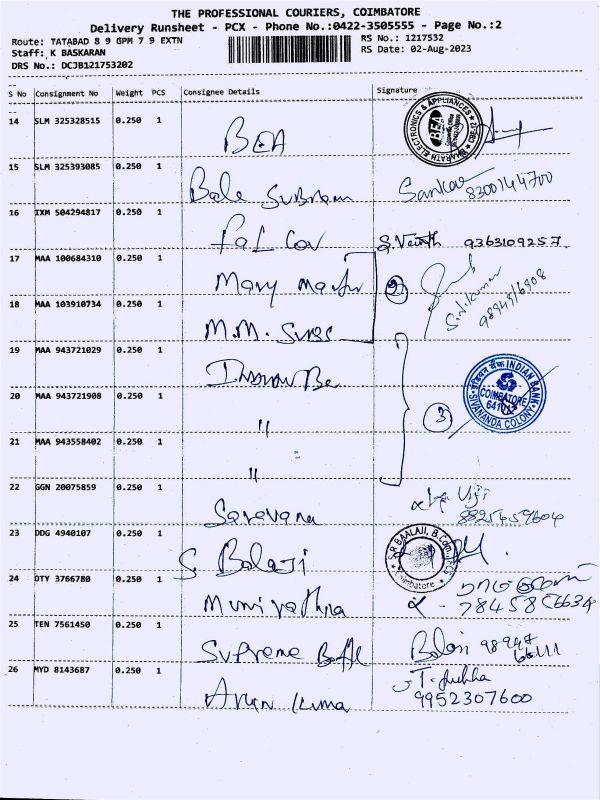 THE PROFESSIONAL COURIERS, COIMBATORE
Delivery Runsheet - PCX - Phone No.:0422-3505555 - Page No.:2
Route: TATABAD 8 9 GPM 7 9 EXTN
RS No.: 1217532
Staff: K BASKARAN
RS Date: 02-Aug-2023
DRS No.: DCJB121753202
S No Consignment No Weight PCS Consignee Details Signature
14 SLM 325328515 0.250 1 BEA
BHARATH ELECTRONICS & APPLIANCES
BEA
CBE-12
15 SLM 325393085 0.250 1 Bala Subram Sankar 8300144700
16 IXM 504294817 0.250 1 Pal Cov 9363109257
17 MAA 100684310 0.250 1 Mary Martin 2
18 MAA 103910734 0.250 1 M.M. S.N.kumar 9894516908
19 MAA 943721029 0.250 1
20 MAA 943721908 0.250 1 " 3
INDIAN BANK
इंडियन बैंक
COIMBATORE
SIVANANDA COLONY
21 MAA 943558402 0.250 1 "
22 GGN 20075859 0.250 1 Saravana Viji
8825459604
23 DDG 4940107 0.250 1 S. Balaji
S.R BAALAJI, B.Com.
Coimbatore
24 OTY 3766780 0.250 1 Muni rathna
25 TEN 7561450 0.250 1 Supreme Balaji 98947
66111
26 MYD 8143687 0.250 1 Arun Kuma
9952307600